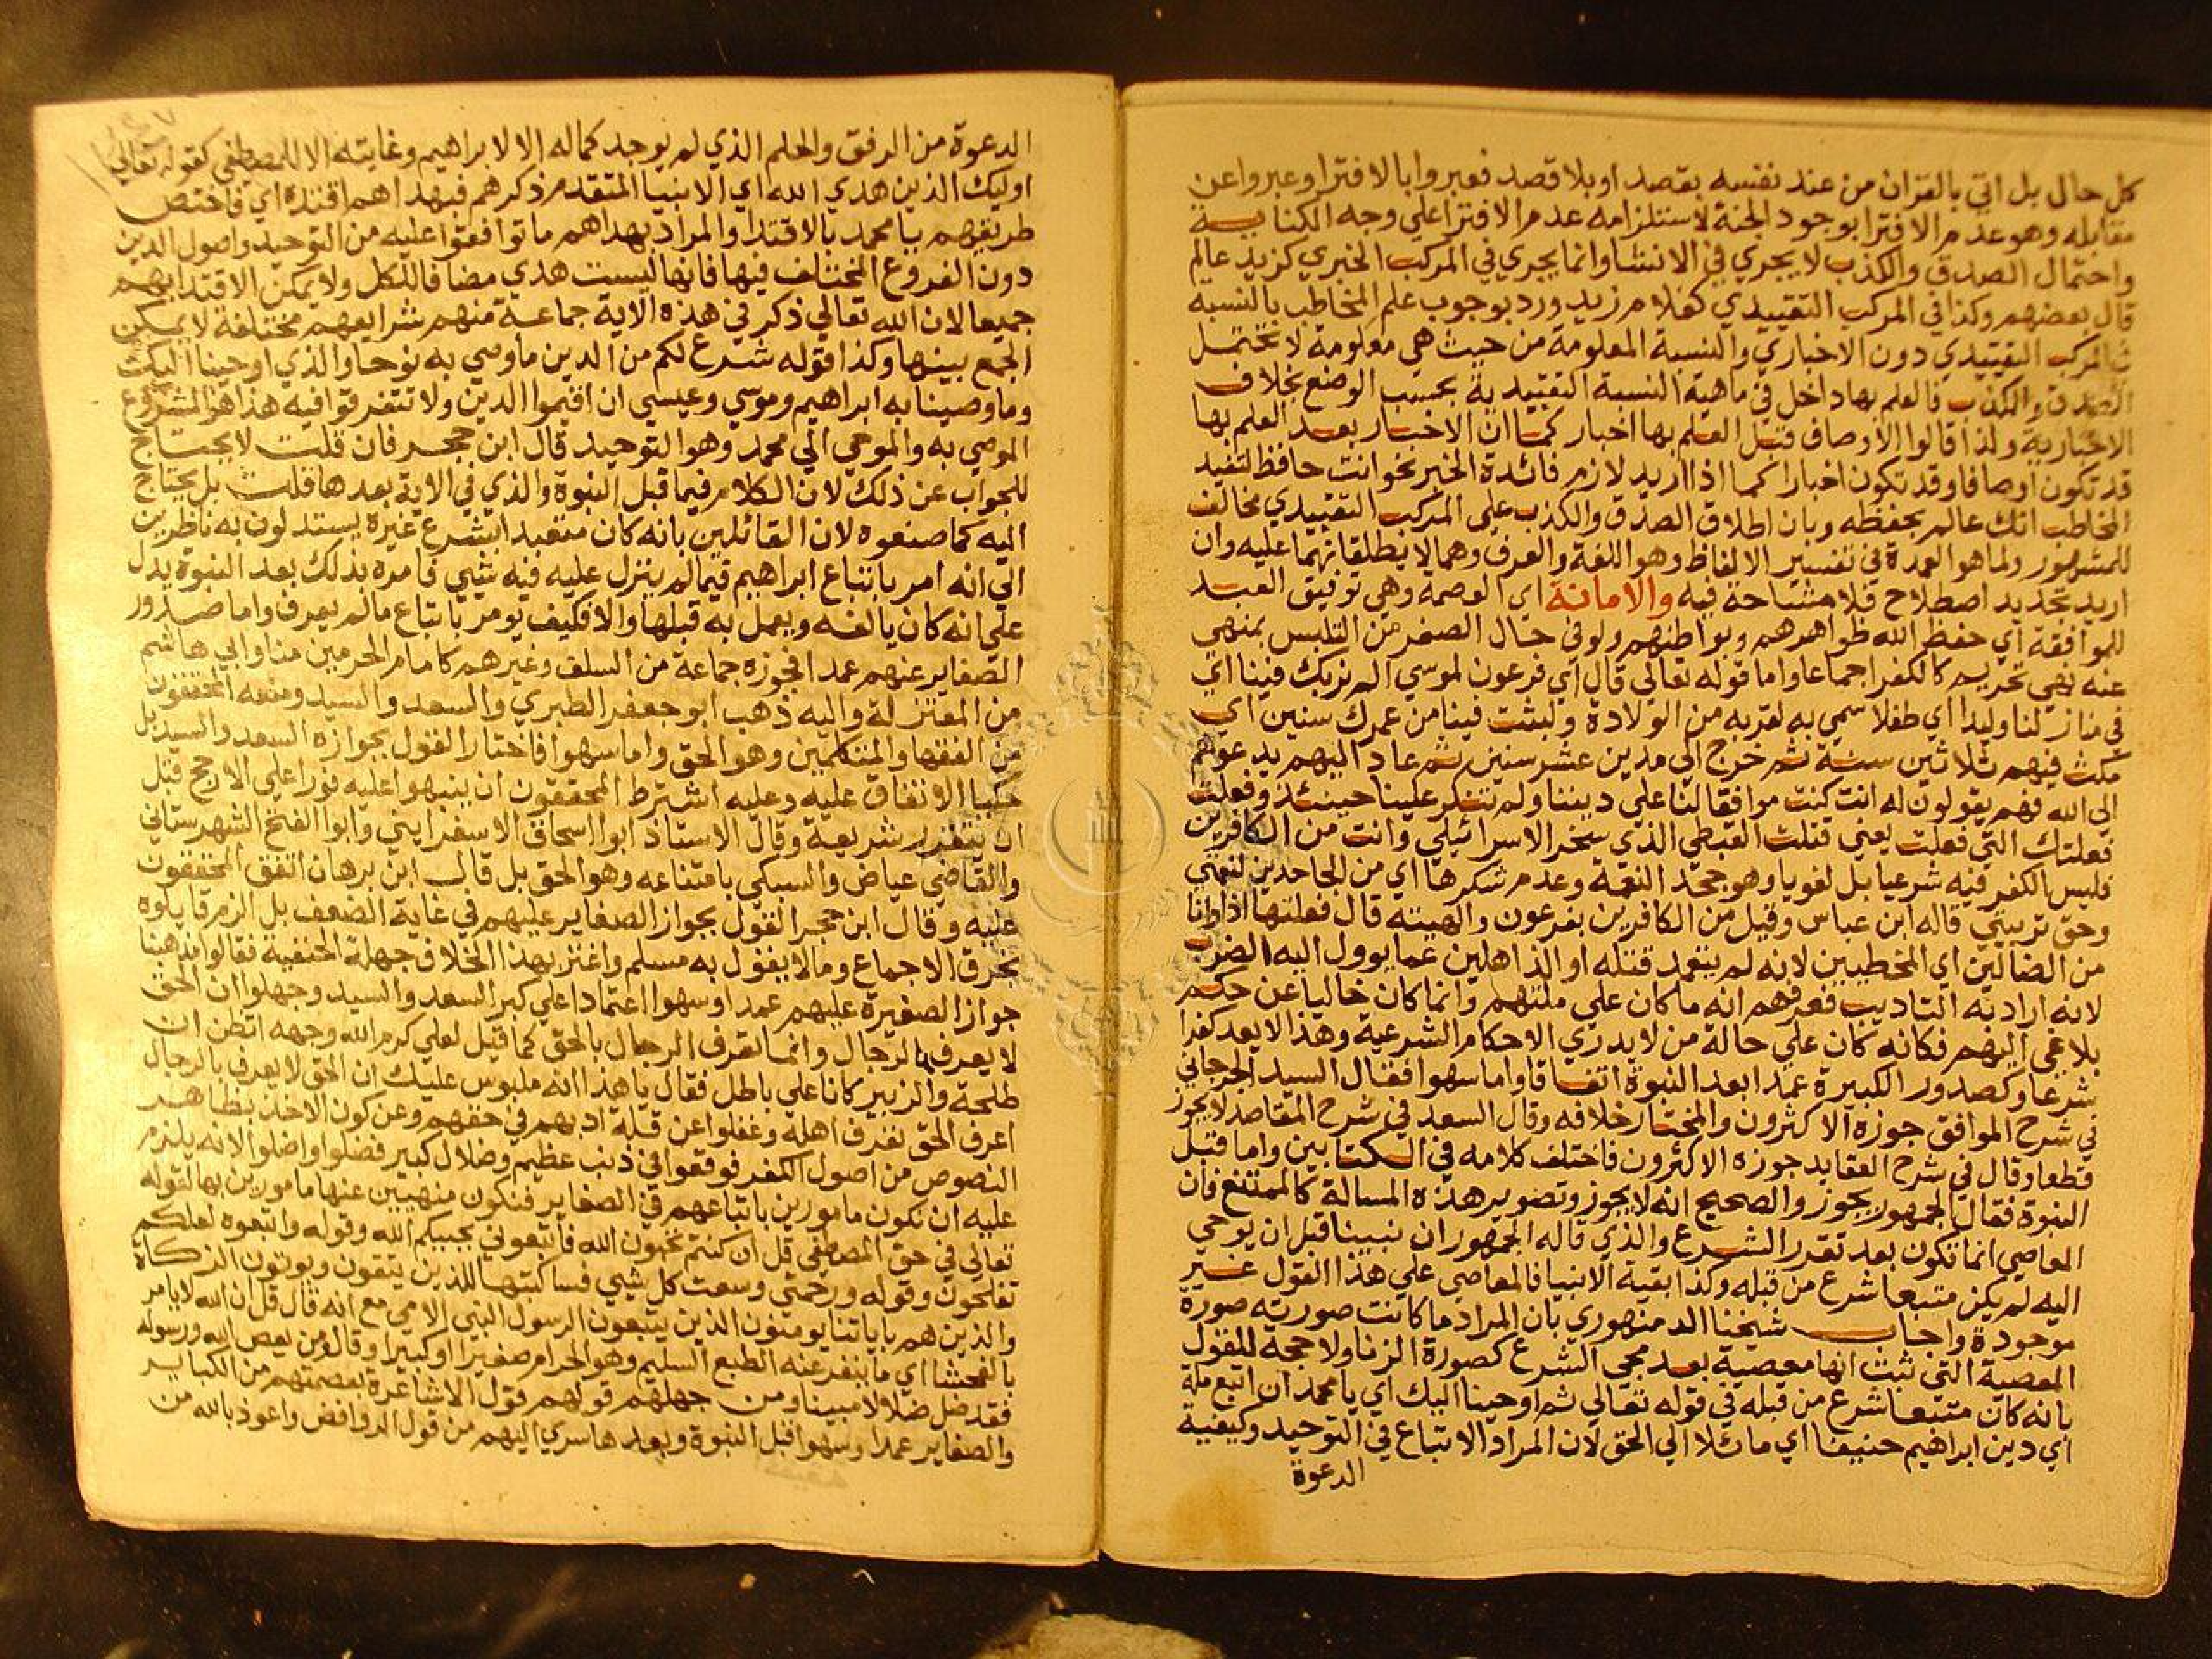 كل حال بل اتي بالقران من عند نفسه بقصد او بلا قصد فعبروا بالافترا وعبروا عن
مقابله وهو عدم الافترا بوجود الجنة لاستلزامه عدم الافترا علي وجه الكناية
واحتمال الصدق والكذب لا يجري في الانشا وانما يجري في المركب الخبري كزيد عالم
قال بعضهم وكذا في المركب التقييدي كغلام زيد ورد بوجوب علم المخاطب بالنسبه
في المركب التقييدي دون الاخباري والنسبة المعلومة من حيث هي معلومة لا تحتمل
الصدق والكذب فالعلم بها داخل في ماهية النسبة التقييدية بحسب الوضع بخلاف
الاخبارية ولذا قالوا الاوصاف قبل العلم بها اخبار كما ان الاخبار بعد العلم بها
قد تكون اوصافا وقد تكون اخبارا كما اذا اريد لازم فائدة الخبر نحو انت حافظ لتفيد
المخاطب انك عالم بحفظه وبان اطلاق الصدق والكذب علي المركب التقييدي مخالف
للمشهور ولما هو العمدة في تفسير الالفاظ وهو اللغة والعرف وهما لا يطلقانهما عليه وان
اريد تجديد اصطلاح فلا مشاحة فيه والامانة اي العصمة وهي توفيق العبد
للموافقة اي حفظ الله ظواهرهم وبواطنهم ولو في حال الصغر من التلبس بمنهي
عنه نهي تحريم كالكفر اجماعا واما قوله تعالي قال اي فرعون لموسي الم نربك فينا اي
في منازلنا وليدا اي طفلا سمي به لقربه من الولادة ولبثت فينا من عمرك سنين اي
مكث فيهم ثلاثين سنة ثم خرج الي مدين عشر سنين ثم عاد اليهم يدعوهم
الي الله فهم يقولون له انت كنت موافقا لنا علي ديننا ولم تنكر علينا حينئذ وفعلت
فعلتك التي فعلت يعني قتلت القبطي الذي سخر الاسرائيلي وانت من الكافرين
فليس الكفر فيه شرعيا بل لغويا وهو جحد النعمة وعدم شكرها اي من الجاحدين لنعمتي
وحق تربيتي قاله ابن عباس وقيل من الكافرين بفرعون والهيته قال فعلتها اذا وانا
من الضالين اي المخطيين لانه لم يتعمد قتله او الذاهلين عما يوول اليه الضرب
لانه اراد به التاديب فعرفهم انه ما كان علي ملتهم وانما كان خاليا عن حكم
بلاغي اليهم فكانه كان علي حالة من لا يدري الاحكام الشرعية وهذا لا يعد كفرا
شرعا وكصدور الكبيرة عمدا بعد النبوة اتفاقا واما سهوا فقال السيد الجرجاني
في شرح المواقف جوزه الاكثرون والمختار خلافه وقال السعد في شرح المقاصد لا يجوز
قطعا وقال في شرح العقايد جوزه الاكثرون فاختلف كلامه في الكتابين واما قبل
النبوة فقال الجمهور يجوز والصحيح انه لا يجوز وتصوير هذه المسالة كالممتنع فان
المعاصي انما تكون بعد تقرر الشرع والذي قاله الجمهور ان نبينا قبل ان يوحي
اليه لم يكن متبعا شرع من قبله وكذا بقية الانبيا فالمعاصي علي هذا القول غير
موجودة واجاب شيخنا الدمنهوري بان المراد ما كانت صورته صورة
المعصية التي ثبت انها معصية بعد مجي الشرع كصورة الزنا ولا حجة للقول
بانه كان متبعا شرع من قبله في قوله تعالي ثم اوحينا اليك اي يا محمد ان اتبع ملة
اي دين ابراهيم حنيفا اي مائلا الي الحق لان المراد الاتباع في التوحيد وكيفية
الدعوة
الدعوة من الرفق والحلم الذي لم يوجد كماله الا لابراهيم وغايته الا للمصطفي كقوله تعالي
اوليك الذين هدي الله اي الانبيا المتقدم ذكرهم فبهداهم اقتده اي فاختص
طريقهم يا محمد بالاقتدا والمراد بهداهم ما توافقوا عليه من التوحيد واصول الدين
دون الفروع المختلف فيها فانها ليست هدي مضافا للكل ولا يمكن الاقتدا بهم
جميعا لان الله تعالي ذكر في هذه الاية جماعة منهم شرايعهم مختلفة لا يمكن
الجمع بينها وكذا قوله شرع لكم من الدين ما وصي به نوحا والذي اوحينا اليك
وما وصينا به ابراهيم وموسي وعيسي ان اقيموا الدين ولا تتفرقوا فيه هذا هو المشروع
الموصي به والموحي الي محمد وهو التوحيد قال ابن حجر فان قلت لا يحتاج
للجواب عن ذلك لان الكلام فيما قبل النبوة والذي في الاية بعدها قلت بل يحتاج
اليه كما صنعوه لان القائلين بانه كان متعبدا بشرع غيره يستدلون به ناظرين
الي انه امر باتباع ابراهيم فيما لم ينزل عليه فيه شيي فامره بذلك بعد النبوة يدل
علي انه كان يالفه ويعمل به قبلها والا فكيف يومر باتباع ما لم يعرف واما صدور
الصغاير عنهم عمدا فجوزه جماعة من السلف وغيرهم كامام الحرمين منا وابي هاشم
من المعتزلة واليه ذهب ابو جعفر الطبري والسعد والسيد ومنعه المحققون
من الفقها والمتكلمين وهو الحق واما سهوا فاختار القول بجوازه السعد والسيد بل
حكيا الاتفاق عليه وعليه اشترط المحققون ان ينبهوا عليه فورا علي الارجح قبل
ان يتقرر شريعة وقال الاستاذ ابو اسحاق الاسفرايني وابو الفتح الشهرستاني
والقاضي عياض والسبكي بامتناعه وهو الحق بل قال ابن برهان اتفق المحققون
عليه وقال ابن حجر القول بجواز الصغاير عليهم في غاية الضعف بل الزم قايلوه
بخرق الاجماع وما لا يقول به مسلم واغتر بهذا الخلاف جهلة الحنفية فقالوا مذهبنا
جواز الصغيرة عليهم عمدا وسهوا اعتمادا علي كبر السعد والسيد وجهلوا ان الحق
لا يعرف بالرجال وانما تعرف الرجال بالحق كما قيل لعلي كرم الله وجهه اتظن ان
طلحة والزبير كانا علي باطل فقال يا هذا انه ملبوس عليك ان الحق لا يعرف بالرجال
اعرف الحق تعرف اهله وغفلوا عن قلة ادبهم في حقهم وعن كون الاخذ بظاهر
النصوص من اصول الكفر فوقعوا في ذنب عظيم وضلال كبير فضلوا واضلوا لانه يلزم
عليه ان نكون مامورين باتباعهم في الصغاير فنكون منهيين عنها مامورين بها لقوله
تعالي في حق المصطفي قل ان كنتم تحبون الله فاتبعوني يحببكم الله وقوله واتبعوه لعلكم
تفلحون وقوله ورحمتي وسعت كل شيي فساكتبها للذين يتقون ويوتون الزكاة
والذين هم باياتنا يومنون الذين يتبعون الرسول النبي الامي مع انه قال قل ان الله لا يامر
بالفحشا اي ما ينفر عنه الطبع السليم وهو الحرام صغيرا او كبيرا وقال ومن يعص الله ورسوله
فقد ضل ضلالا مبينا ومن جهلهم قولهم قول الاشاعرة بعصمتهم من الكباير
والصغاير عمدا وسهوا قبل النبوة وبعدها سري اليهم من قول الروافض واعوذ بالله من